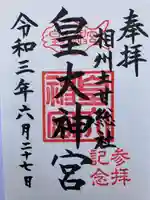 奉拝
相州土甘総社
皇大神宮
令和三年六月二十七日
参拝
記念